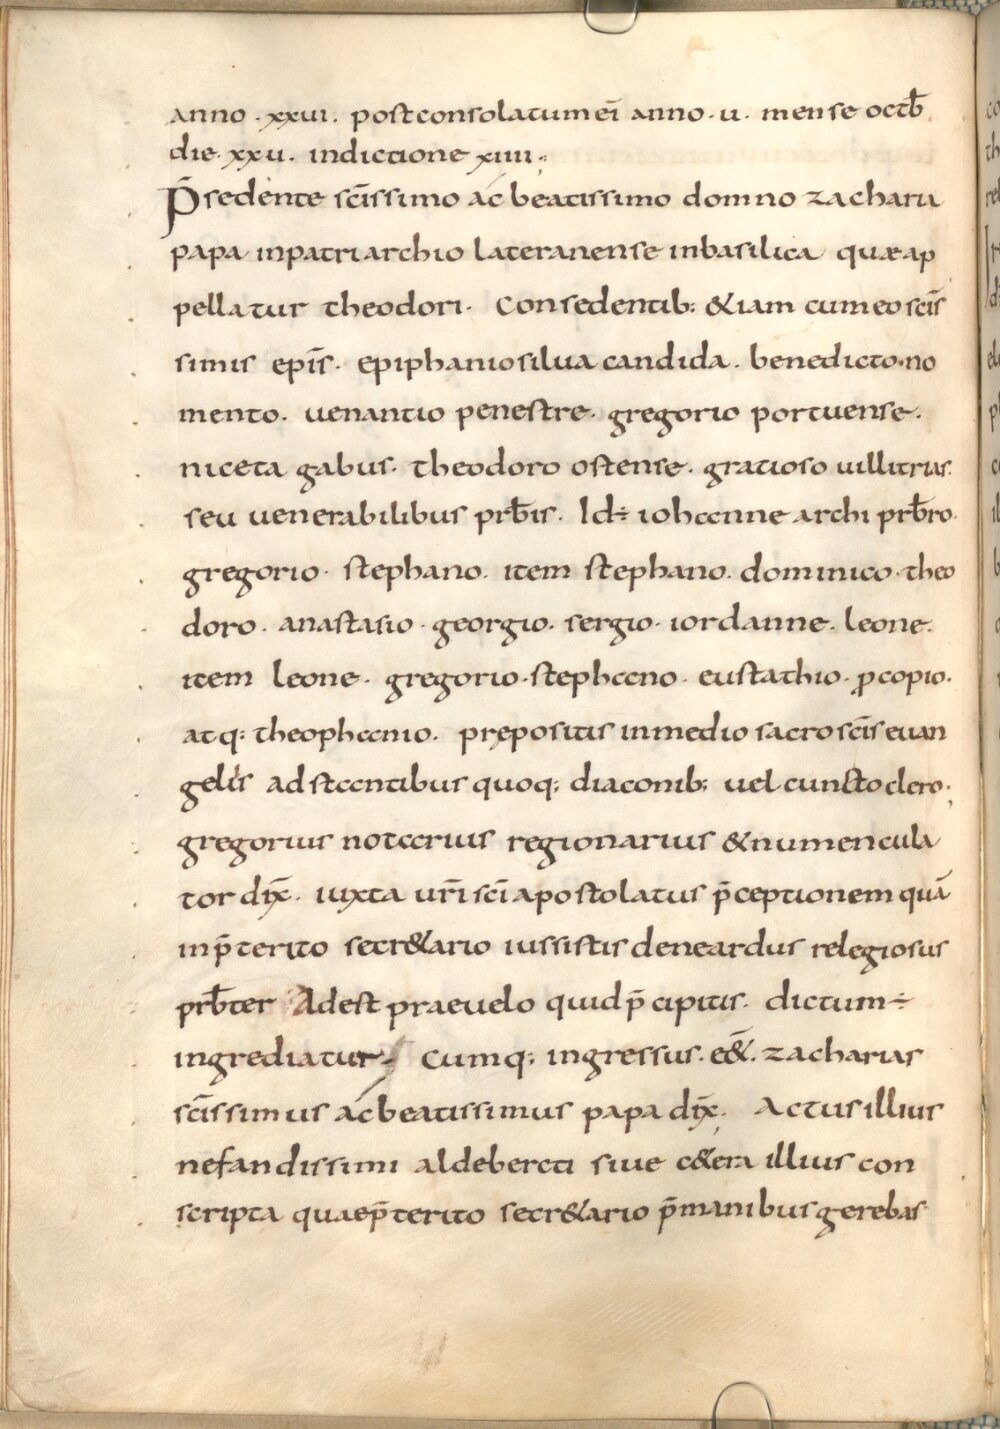 anno · xxvi · post consolatum ei̅ anno · u · mense octb̅
die · xxu · indictione xiiii ·
P̅sedente sc̅issimo ac beatissimo domno zacharia
papa inpatriarchio lateranense inbasilica quæ ap
pellatur theodori · Consedentib: &iam cum eo sc̅is
simis epi̅s · epiphanio silua candida · benedicto · no
mento · uenantio penestre · gregorio portuense ·
niceta gabus · theodoro ostense · gratioso uillitrias ·
seu uenerabilibus prb̅is · Id÷ iohanne archi prb̅ro ·
gregorio · stephano · item stephano · dominico · theo
doro · anastasio · georgio · sergio · iordanne · leone ·
item leone · gregorio · stephano · eustathio · ꝓcopio ·
atq: theophanio · prępositis inmedio sacrosc̅is euan
geliis adstantibus quoq: diaconib: uel cuncto clero ·
gregorius notarius regionarius &numencula
tor dix̅ · iuxta ur̅i sc̅i apostolatus p̅ceptionem qua̅
inp̅terito secr&ario iussistis deneardus relegiosus
prb̅ter Adest praeuelo quid p̅cipitis · dictum ÷
ingrediatur Cumq: ingressus · e̅& · zacharias
sc̅issimus ac beatissimus papa dix̅ · Actus illius
nefandissimi aldeberati siue c&era illius con
scripta quae p̅terito secr&ario p̅ manibus gerebas ·